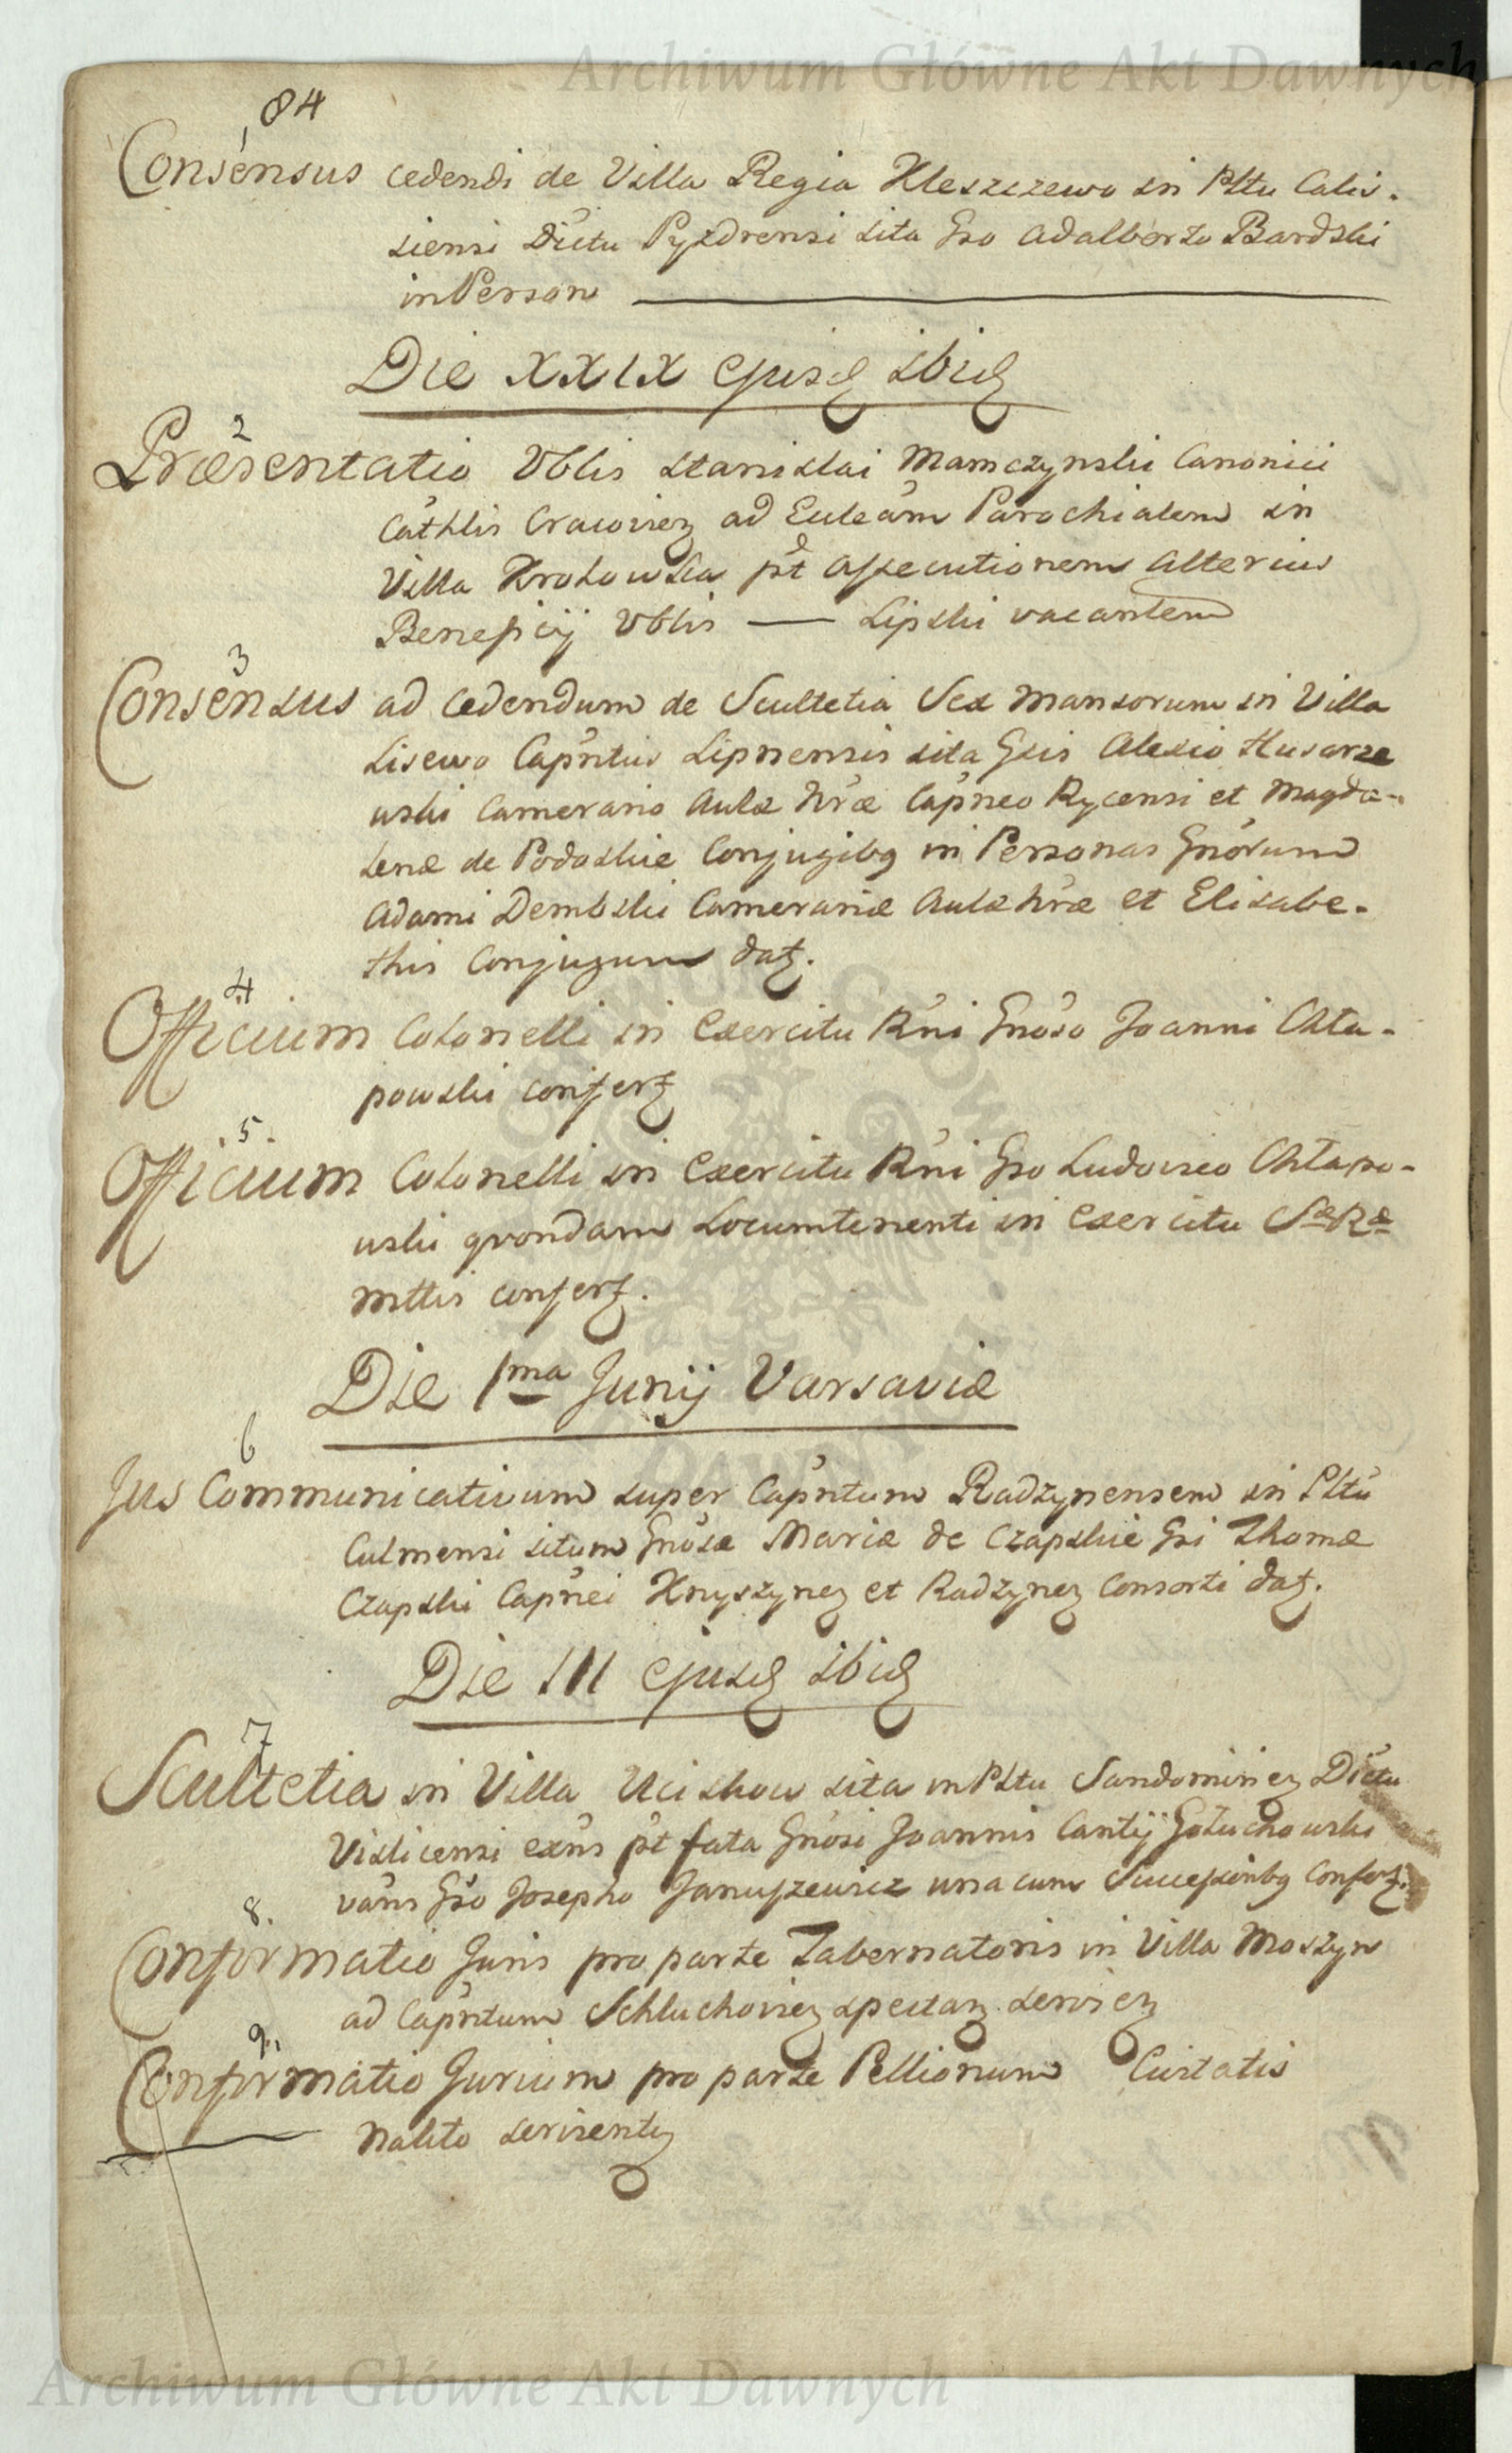 Archiwum Główne Akt Dawnych
84
1
Consensus cedendi de Villa Regia Kleszczewo in Pltu Calis-
siensi Dictu Pyzdrensi sita Gso Adalberto Bardski
in Person
Die XXIX ejusd ibid
2
Præsentatio Vblis Stanislai Mamczynski Canonici
Cathlis Cracovien ad Eccleam Parochialem in
Villa Krokowska pt assecutionem alterius
Beneficij Vblis — Lipski vacantem
3
Consensus ad cedendum de Scultetia Sex Mansorum in Villa
Lisewo Capntus Lipnensis sita Gsis Alexio Husarze
wski Camerario Aulæ Nræ Capneo Rycensi et Magda-
lenæ de Podoskie Conjugibq in Personas Gnorum
Adami Dembski Camerariæ Aulæ Nræ et Elisabe-
this Conjugum dat.
4
Officium Colonelli in Exercitu Rni Gnoso Joanni Chła-
powski confert
5.
Officium Colonelli in Exercitu Rni Gso Ludovico Chłapo-
wski qvondam Locumtenenti in Exercitu Sæ Ræ
Mttis confert.
Die 1ma Junij Varsaviæ
6
Jus Communicativum super Capntum Radzynensem in Pltu
Culmensi situm Gnosæ Mariæ de Czapskie Gsi Thomæ
Czapski Capnei Knyszynen et Radzynen Consorti dat.
Die III ejusd ibid
7
Scultetia in Villa Uciskow sita in Pltu Sandomirien Dictu
Vislicensi exns pt fata Gnosi Joannis Cantij Gołuchowski
vans Gso Josepho Januszewicz unacum Successoribq Confert.
8.
Confirmatio Juris pro parte Tabernatoris in Villa Moszyn
ad Capntum Schluchovien spectan servien
9.
Confirmatio Jurium pro parte Pellionum Civitatis
Nakło servienti
Archiwum Główne Akt Dawnych